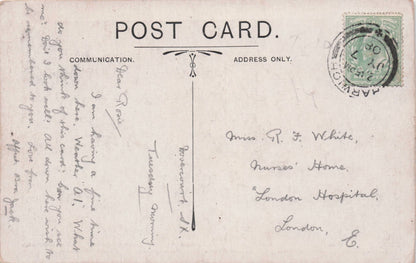 POST CARD.
COMMUNICATION.
ADDRESS ONLY.
Tuesday Morning
Dear Rosie
I am having a fine time
down here. Weather A1. What
do you think of this card? Can you see
me? Don't I look well? All down here wish to
be remembered to you. Love from
Jack.
Miss. R. F. White,
Nurses' Home,
London Hospital,
London, E.
HARWICH